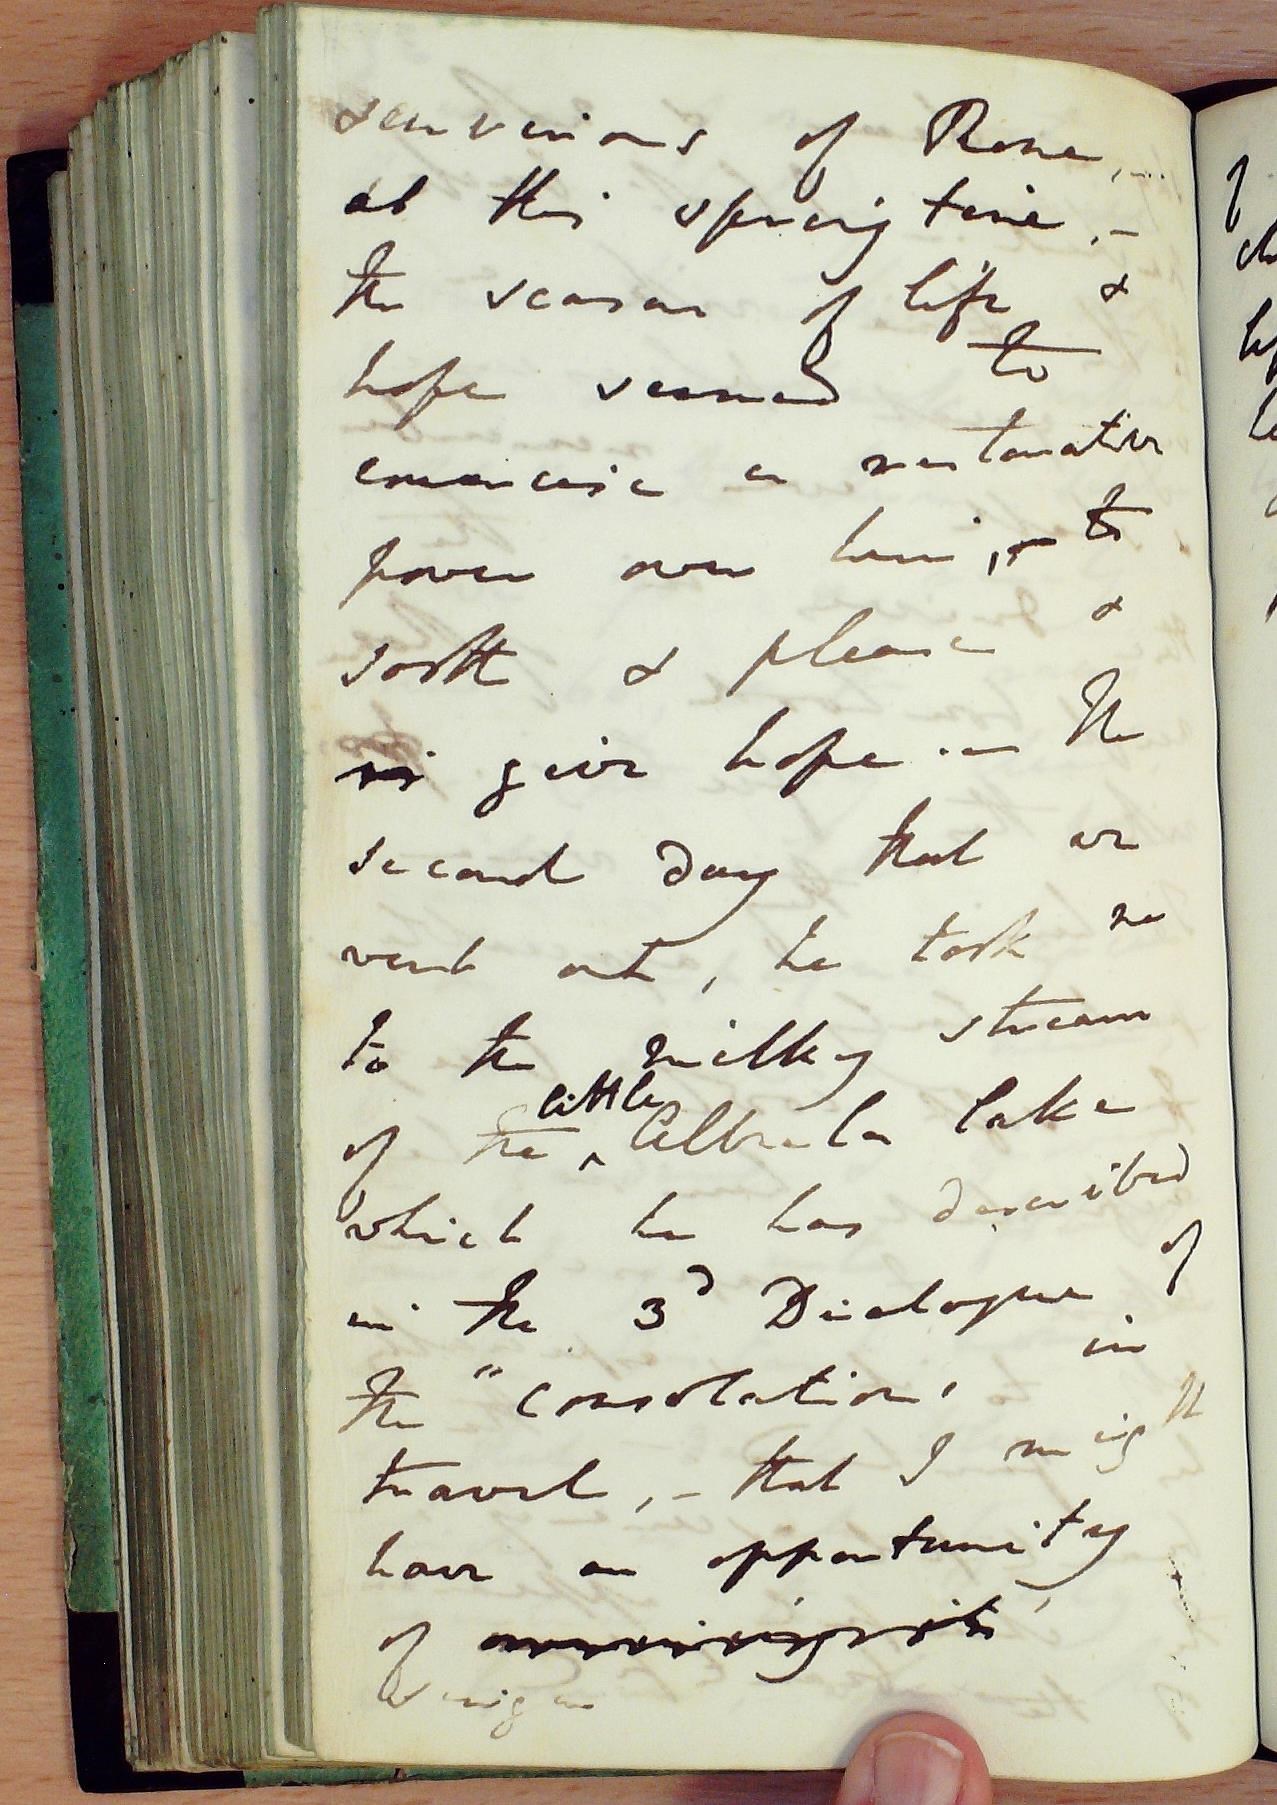 environs of Rome, -
at this spring time, -
the season of life &
hope seemed to
exercise a restorative
power over him, - to
sooth & please &
give hope. - on the
second day that we
went out, he took me
to the milky stream
of the little Albula lake
which he has described
in the 3d Dialogue of
the "Consolations in
travel, - that I might
have an opportunity
of